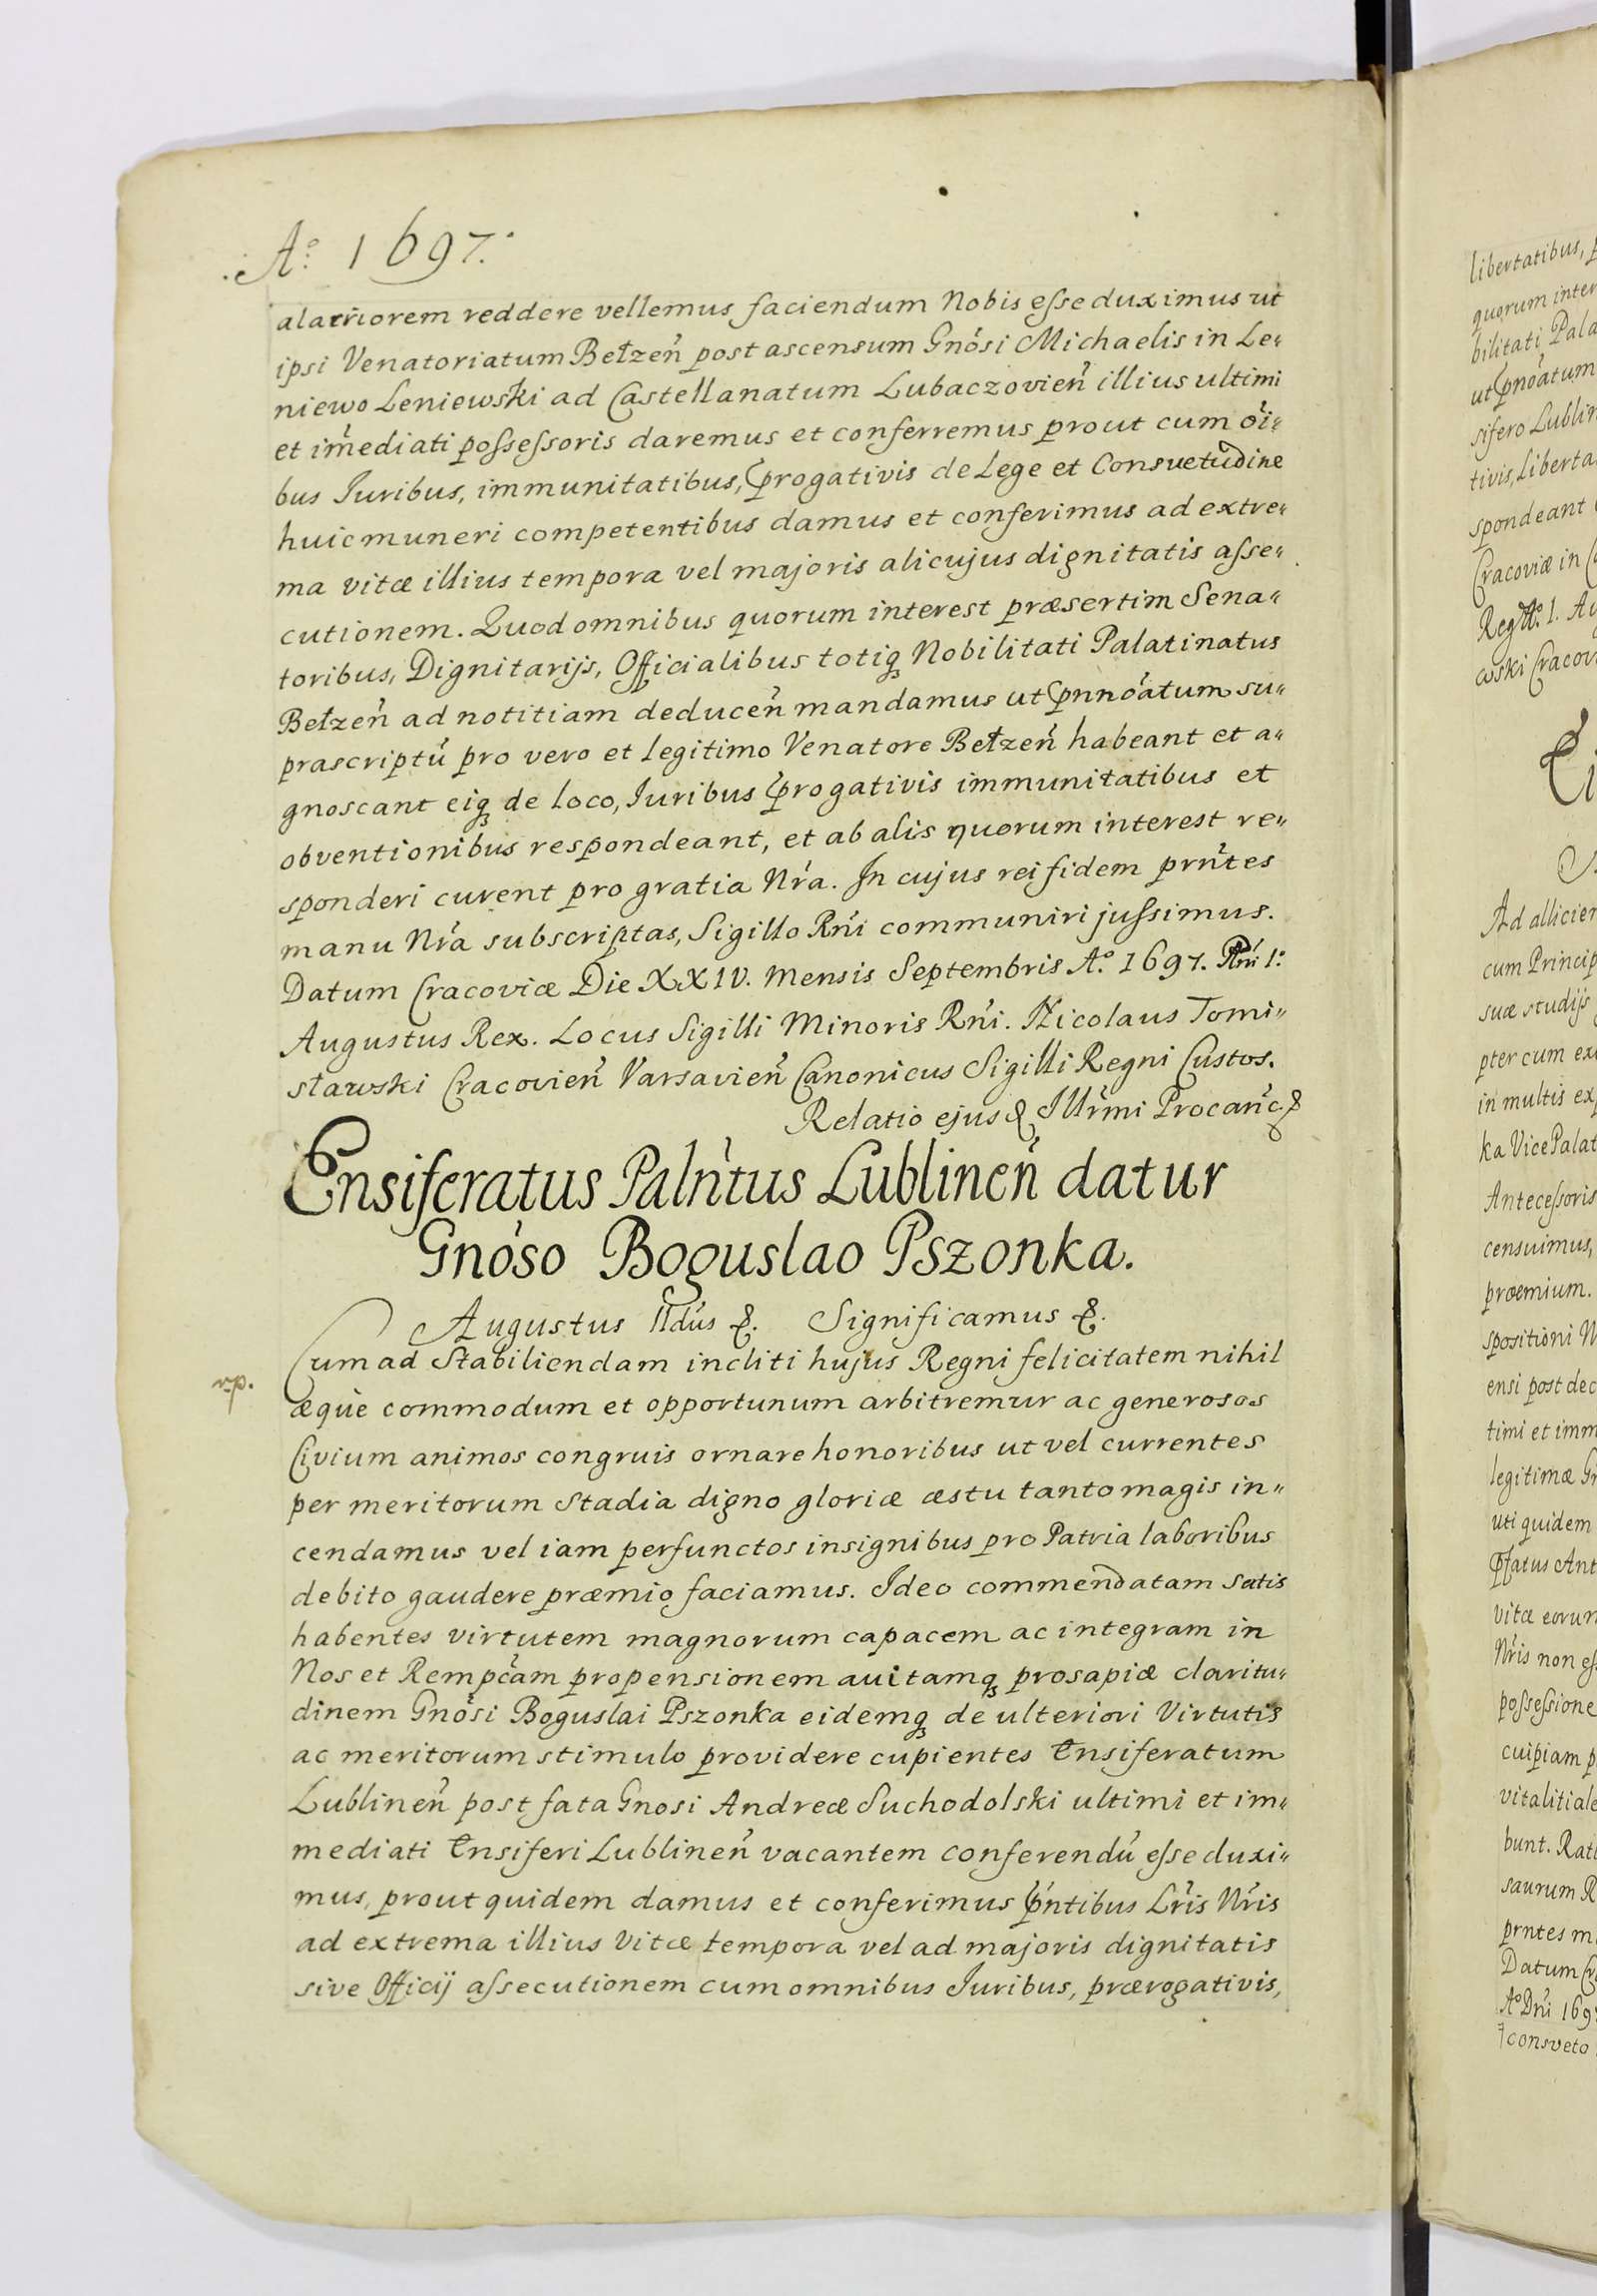 Aº 1697.
alacriorem reddere vellemus faciendum Nobis eſse duximus ut
ipsi Venatoriatum Bełzeń post ascensum Gnósi Michaelis in Le„
niewo Leniewski ad Castellanatum Lubaczovień illius ultimi
et imḿediati poſseſsoris daremus et conferremus prout cum oí„
bus Iuribus, immunitatibus, progativis de Lege et Consvetudine
huic muneri competentibus damus et conferimus ad extre„
ma vitæ illius tempora vel majoris alicujus dignitatis aſse„
cutionem. Quod omnibus quorum interest præsertim Sena„
toribus, Dignitarijs, Officialibus totiq₃ Nobilitati Palatinatus
Bełzeń ad notitiam deduceń mandamus ut pnnóatum su„
prascriptú pro vero et legitimo Venatore Bełzeń habeant et a„
gnoscant eiq₃ de loco, Iuribus progativis immunitatibus et
obventionibus respondeant, et ab alis quorum interest re„
sponderi curent pro gratia Nŕa. In cujus rei fidem prńtes
manu Nŕa subscriptas, Sigillo Rńi communiri juſsimus.
Datum Cracoviæ Die XXIV. Mensis Septembris Aº 1697. Rńi 1º
Augustus Rex. Locus Sigilli Minoris Rńi. Nicolaus Tomi„
sławski Cracovień Varsavień Canonicus Sigilli Regni Custos.
Relatio ejusd Illŕmi Procanć. &
Ensiferatus Palńtus Lublineń datur
Gnóso Boguslao Pszonka.
Augustus IIdús &. Significamus &.
Cum ad Stabiliendam incliti hujus Regni felicitatem nihil
v.p.
æquè commodum et opportunum arbitremur ac generosos
Civium animos congruis ornare honoribus ut vel currentes
per meritorum Stadia digno gloriæ æstu tanto magis in„
cendamus vel iam perfunctos insignibus pro Patria laboribus
debito gaudere præmio faciamus. Ideo commendatam satis
habentes virtutem magnorum capacem ac integram in
Nos et Rempćam propensionem avitamq₃ prosapiæ claritu„
dinem Gnósi Boguslai Pszonka eidemq₃ de ulteriori Virtutis
ac meritorum stimulo providere cupientes Ensiferatum
Lublineń post fata Gnosi Andreæ Suchodolski ultimi et im„
mediati Ensiferi Lublineń vacantem conferendú eſse duxi„
mus, prout quidem damus et conferimus pńtibus Lŕis Nŕis
ad extrema illius Vitæ tempora vel ad majoris dignitatis
sive Officij aſsecutionem cum omnibus Iuribus, prærogativis,
libertatibus,
quorum inter
bilitati Pala
ut pnoátum
sifero Lublin
tivis, Liberta
spondeant
Cracoviæ in
Reg 1. Au
wski Cracov
Ad allicien
cum Princip
suæ studijs
pter cum ex
in multis ex
ka Vice Palat
Anteceſsoris
censuimus,
præmium.
spositioni N
ensi post dec
timi et imm
legitimæ G
uti quidem
pfatus Ant
vitæ eorun
Nŕis non eſ
poſseſsione
cuipiam p
vitalitiale
bunt. Rati
saurum R
prntes m
Datum Cr
Aº Dńi 169
consveto